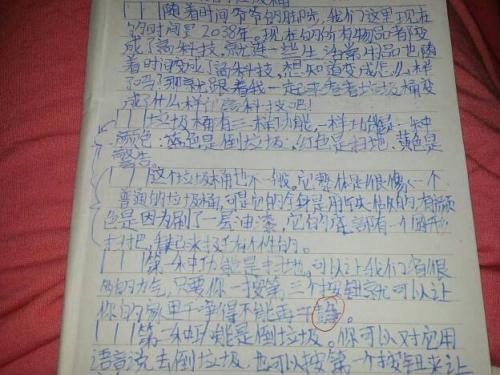 垃圾桶
随着时间爷爷的脚步，我们这里现在
的时间是2038年。现在的所有物品都变
成了高科技，就连一些生活常用品也随
着时间变成了高科技，想知道变成怎么样
了吗？那就跟着我一起来看看垃圾桶变
成了什么样的高科技吧！
垃圾桶有三种功能，一样功能一种
颜色：蓝色是倒垃圾，红色是扫地，黄色是
警告。
这个垃圾桶也不一般，它整体是很像一个
普通的垃圾桶，可是它的全身是用
色是因为刷了一层油漆，它的底部有一个
扫把，
第一种功能是扫地，可以让我们省很
的力气，只要你一按第三个按钮就可以让
你的家里干净得不能再干净。
第二种功能是倒垃圾。你可以对应用
语音说去倒垃圾，也可以按第一个按钮来让